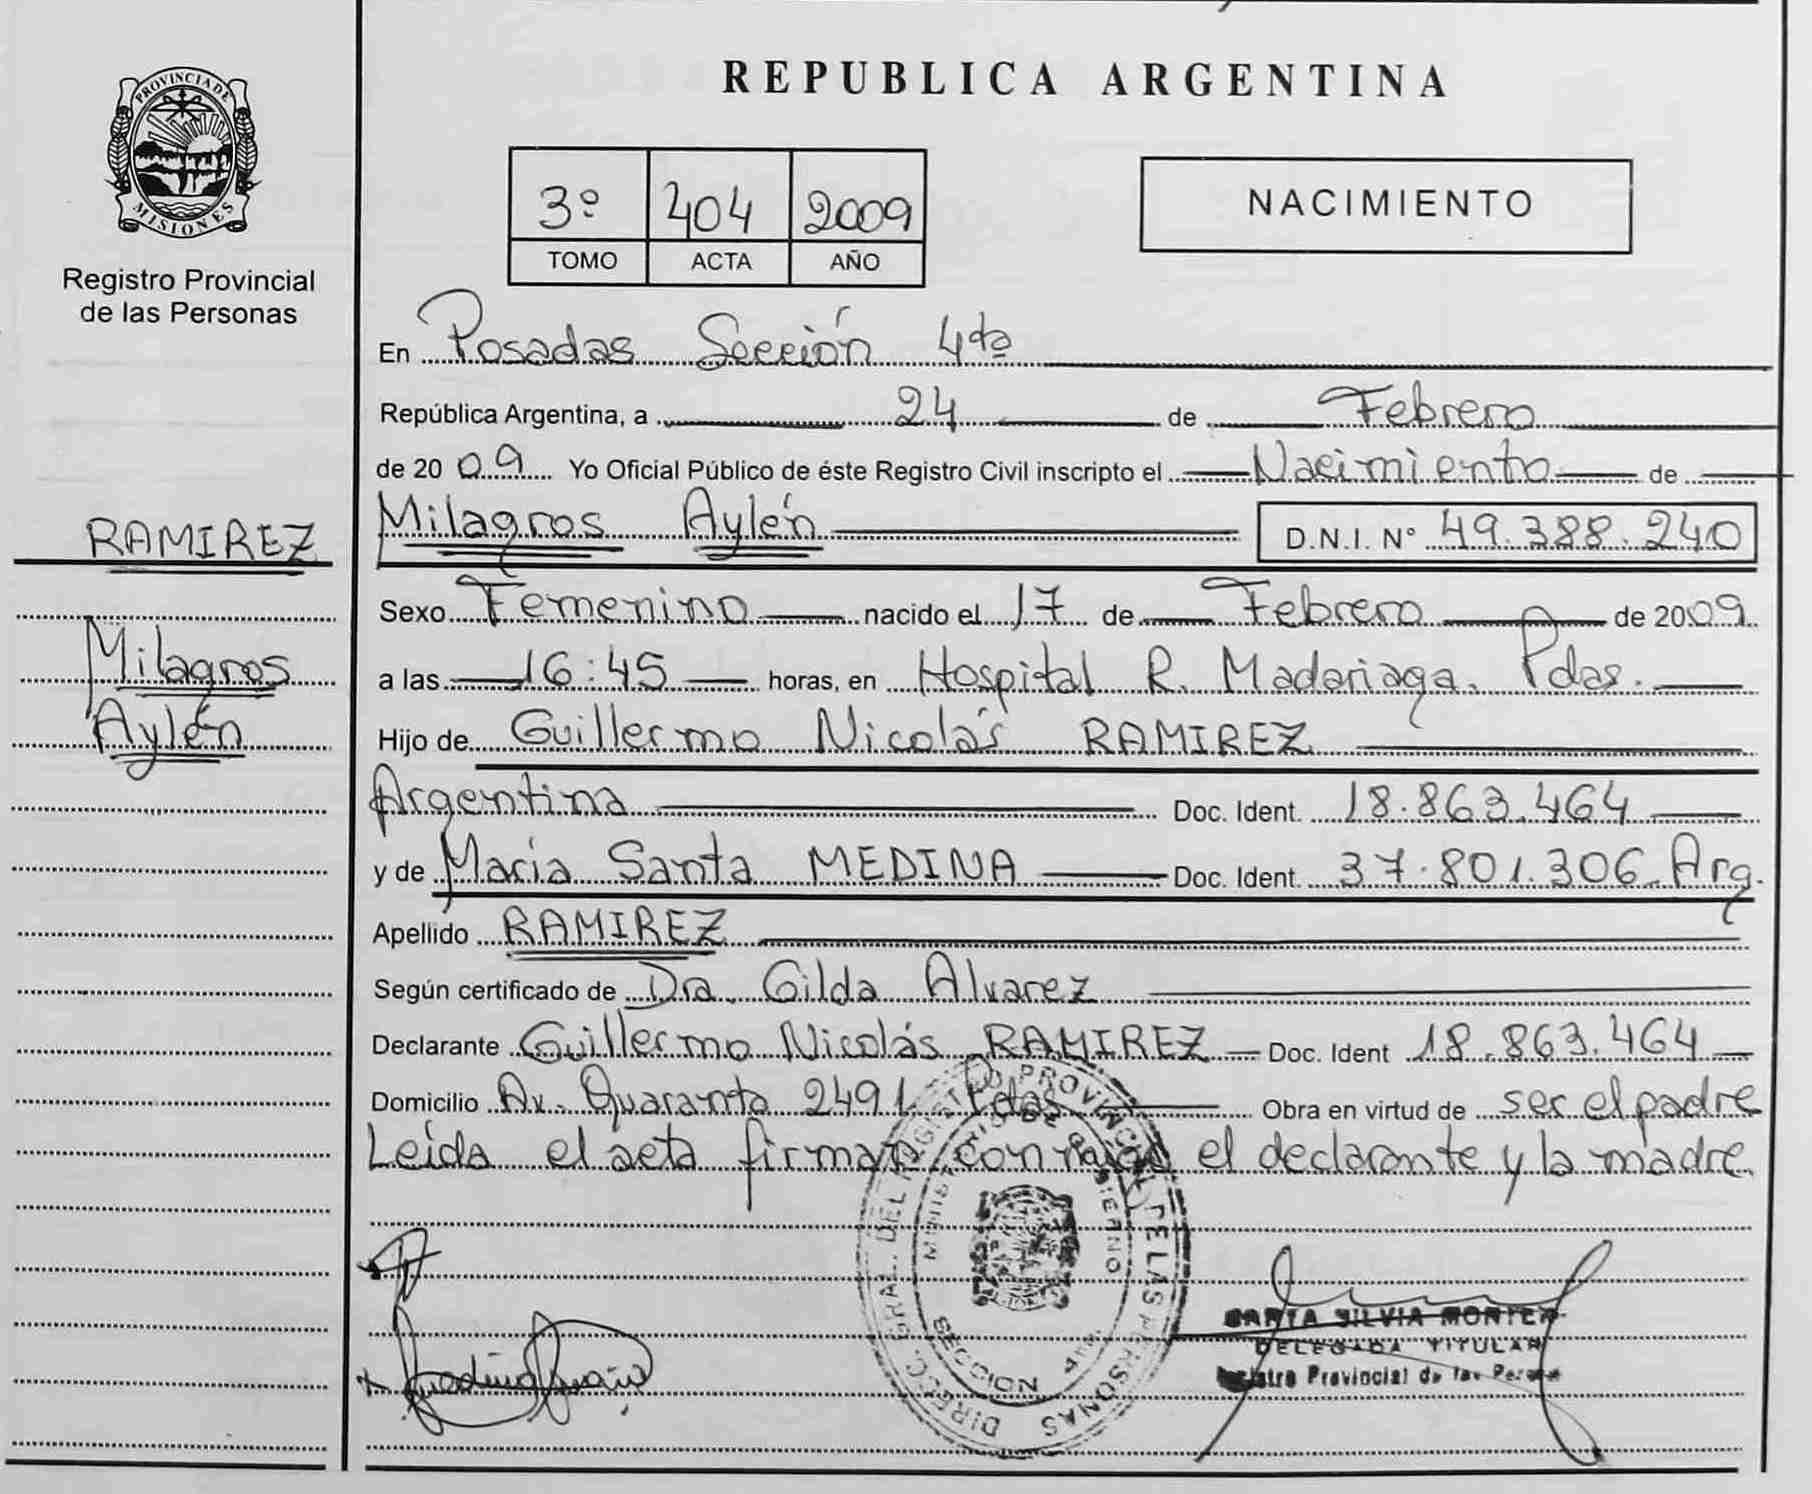 PROVINCIA DE
MISIONES
Registro Provincial
de las Personas
RAMIREZ
Milagros
Aylén
REPUBLICA ARGENTINA
3º 404 2009
TOMO ACTA AÑO
NACIMIENTO
En Posadas Sección 4ta
República Argentina, a 24 de Febrero
de 2009 Yo Oficial Público de éste Registro Civil inscripto el Nacimiento de
Milagros Aylén D.N.I. N° 49.388.240
Sexo Femenino nacido el 17 de Febrero de 2009
a las 16:45 horas, en Hospital R. Madariaga. Pdas.
Hijo de Guillermo Nicolás RAMIREZ
Argentina Doc. Ident. 18.863.464
y de María Santa MEDINA Doc. Ident. 37.801.306 Arg.
Apellido RAMIREZ
Según certificado de Dra. Gilda Alvarez
Declarante Guillermo Nicolás RAMIREZ Doc. Ident 18.863.464
Domicilio Av. Quaranta 2491 Pdas Obra en virtud de ser el padre
Leída el acta firman con el declarante y la madre.
DIRECC. GRAL. DEL REGISTRO PROVINCIAL DE LAS PERSONAS
MINISTERIO DE GOBIERNO
SECCION 4ta.
SILVIA
DELEGADA TITULAR
Provincial de las